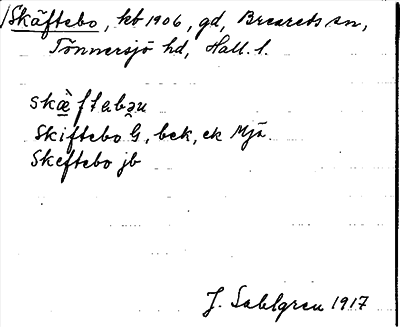 Skäftebo, kb 1906, gd, Brearets sn,
Tönnersjö hd, Hall. l.
skæ̀ftabəu
Skiftebo G, bek, ek Mjä.
Skeftebo jb
J. Sahlgren 1917